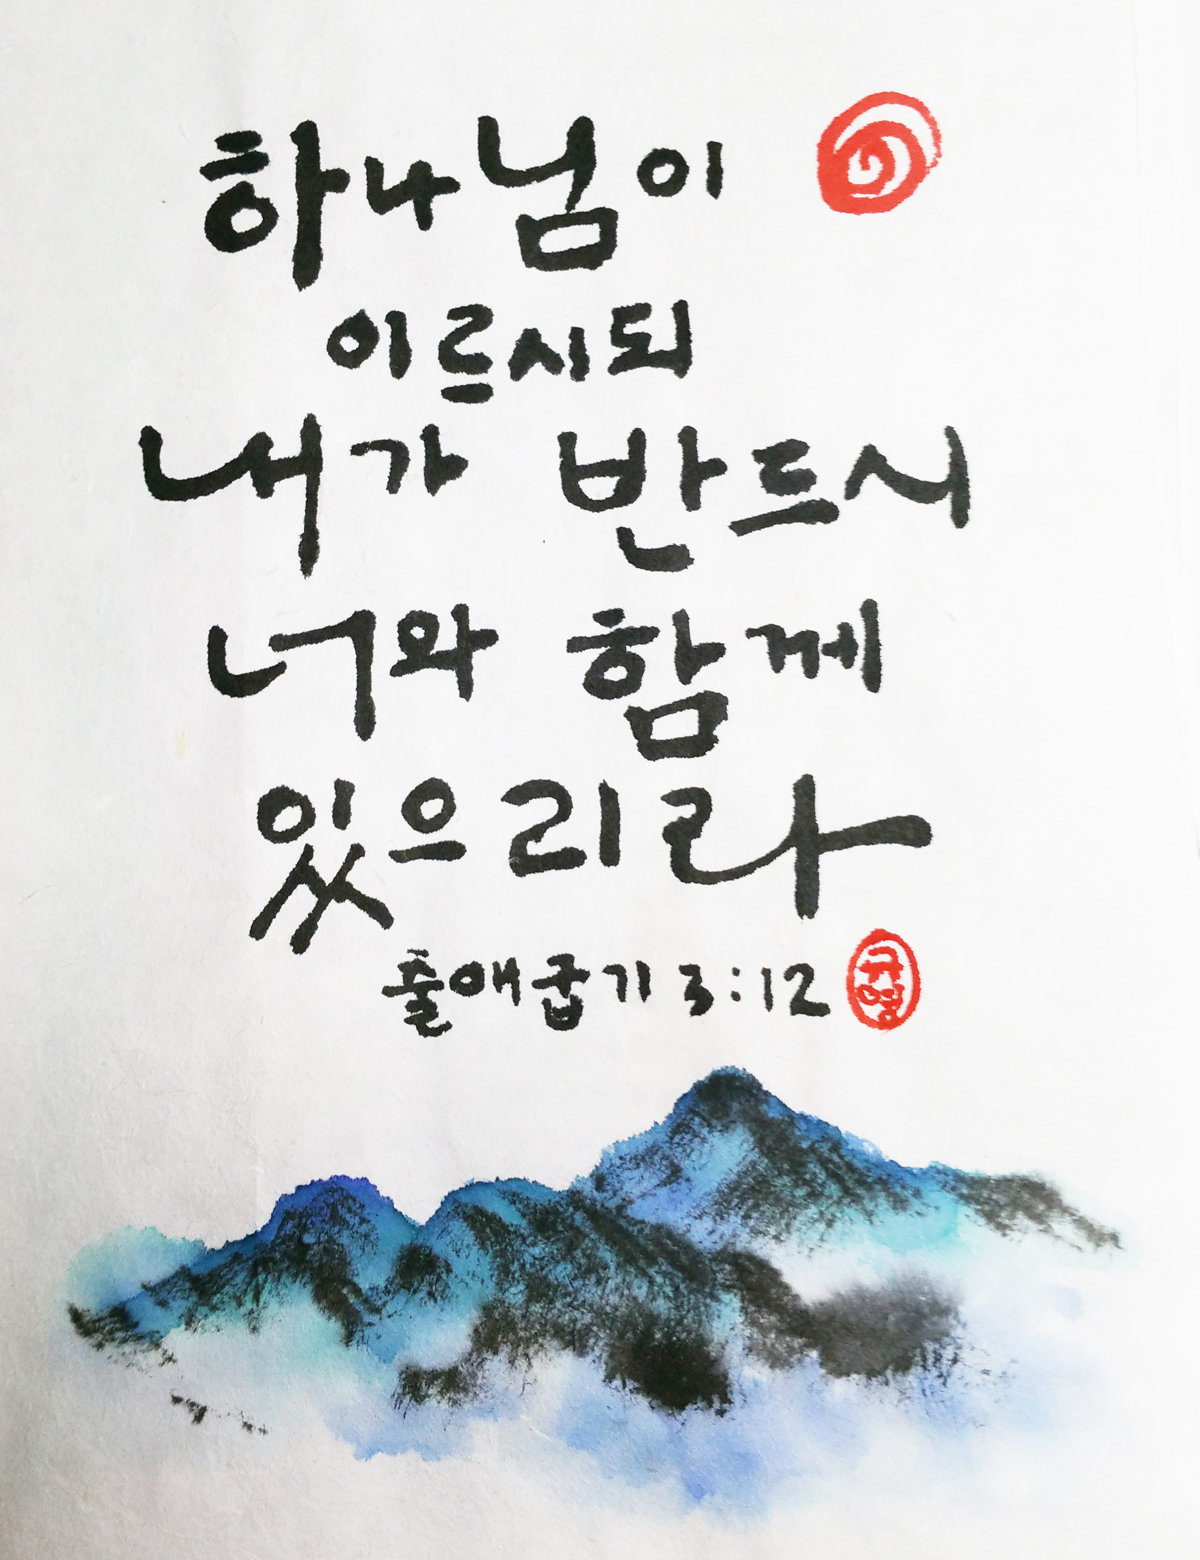 하나님이
이르시되
내가 반드시
너와 함께
있으리라
출애굽기 3:12